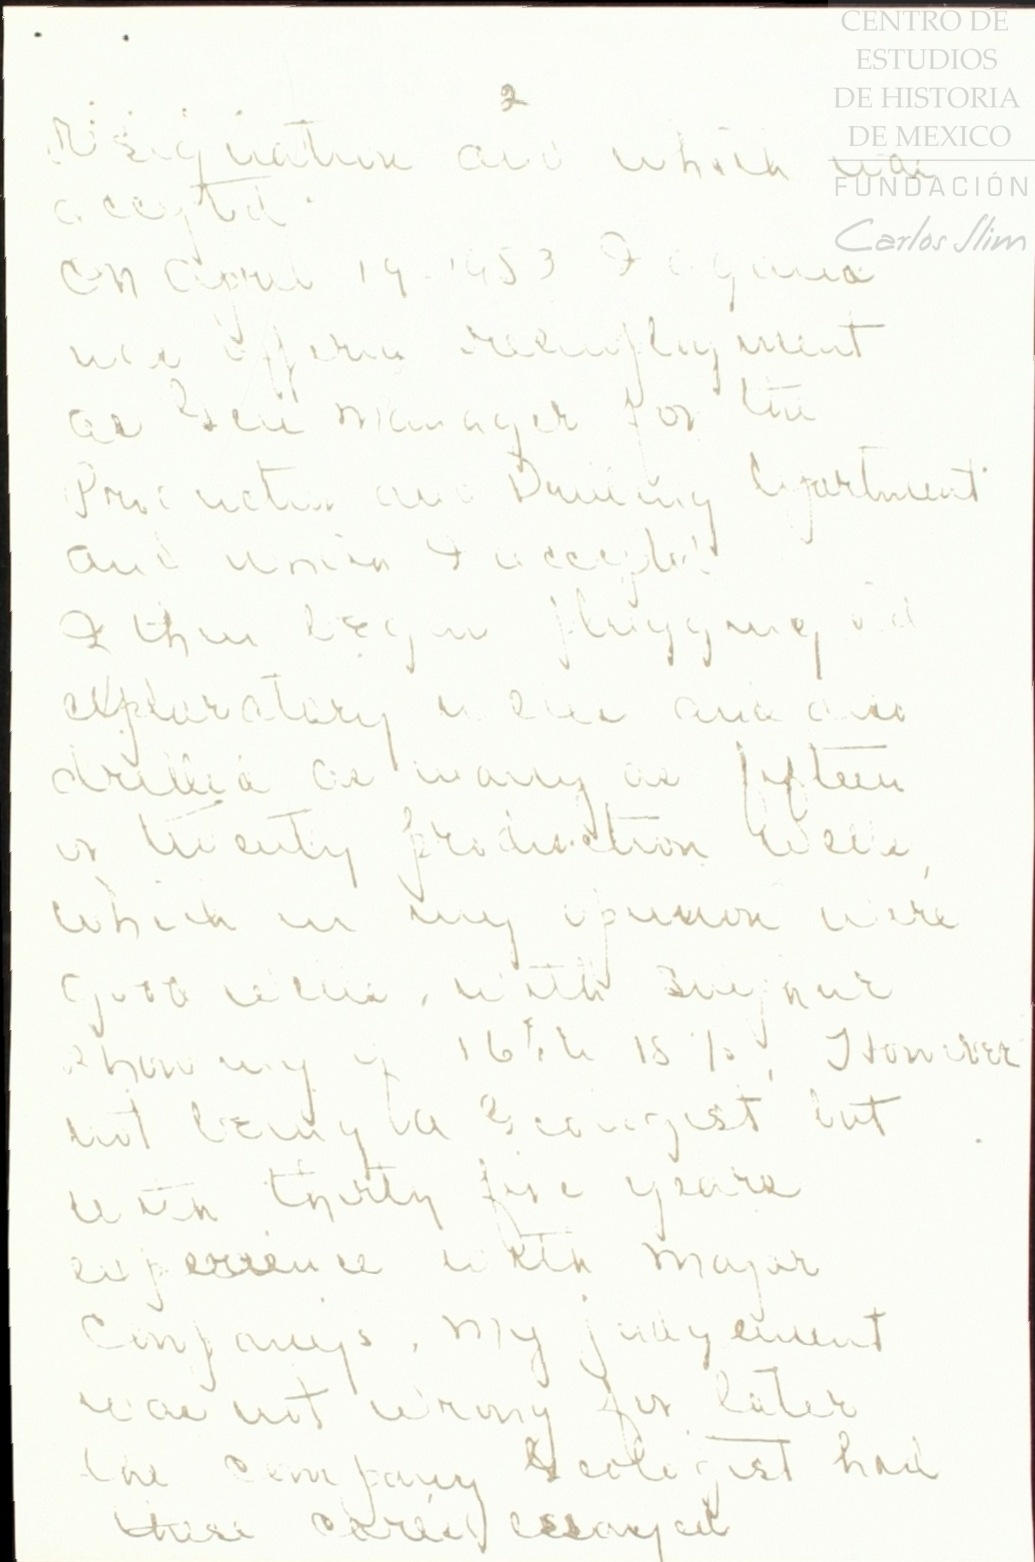 CENTRO DE
ESTUDIOS
DE HISTORIA
DE MEXICO
FUNDACIÓN
Carlos Slim
2
Resignation and which was
accepted.
On April 19-1953 I again
was offered reemployment
as Gen Manager for the
Production and Drilling Department
and which I accepted
I then began plugging old
exploratory wells and also
drilled as many as fifteen
or twenty production wells,
which in my opinion were
good wells, with sulphur
showing of 16% to 18%, However
not being a Geologist but
with thirty five years
experience with major
Companys, my judgement
was not wrong for later
the company Geologist had
these cores essayed